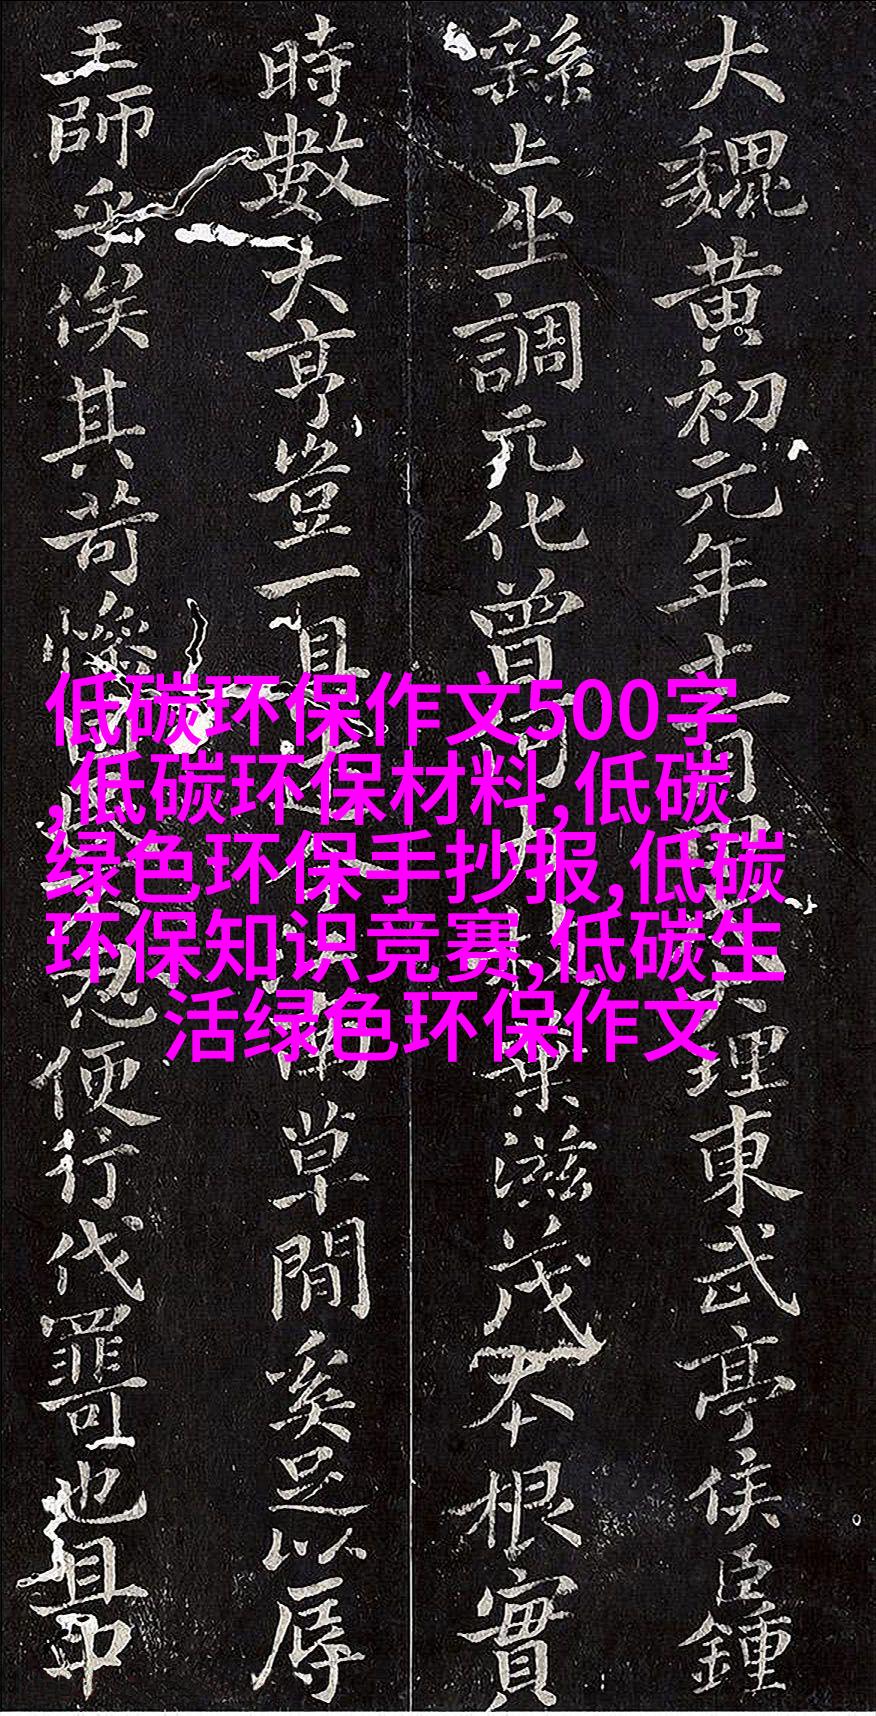 大魏黄初元年十一月大理東武亭侯臣鍾
繇上坐調元化曾葉滋茂本根實
時數大亨豈一具雨草間奚足以辱
王師乎俟其苛慘忍便行伐也且印
低碳环保作文500字
,低碳环保材料,低碳
绿色环保手抄报,低碳
环保知识竞赛,低碳生
活绿色环保作文